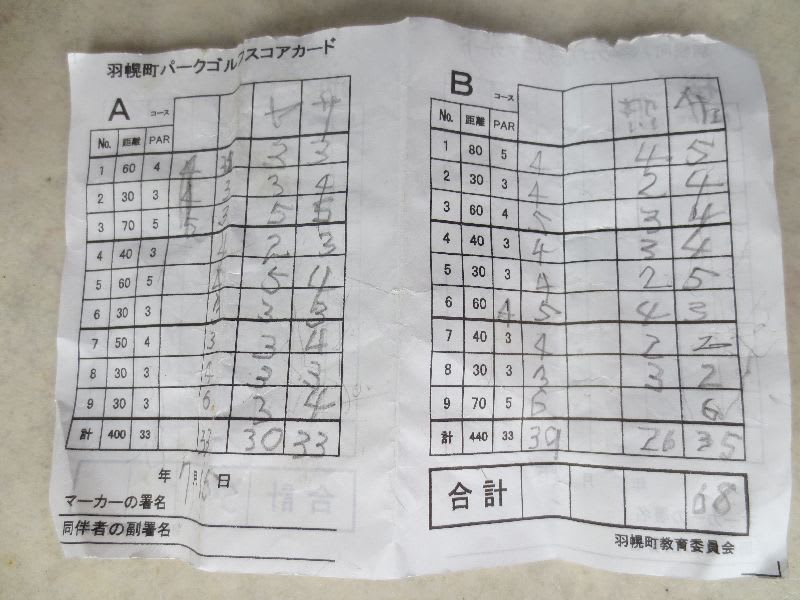 羽幌町パークゴルフスコアカード
A コース
No. 距離 PAR
1 60 4 4 3 3
2 30 3 4 3 3 4
3 70 5 5 3 5 5
4 40 3 2 3
5 60 5 5 4
6 30 3 3 3
7 50 4 3 3 4
8 30 3 4 3 3
9 30 3 6 3 4
計 400 33 33 30 33
年 7月15日
マーカーの署名
同伴者の副署名
B コース
No. 距離 PAR
1 80 5 4 4 5
2 30 3 4 2 4
3 60 4 5 3 4
4 40 3 4 3 4
5 30 3 4 2 5
6 60 4 5 4 3
7 40 3 4 2 2
8 30 3 3 3 2
9 70 5 6 6
計 440 33 39 26 35
合計 68
羽幌町教育委員会